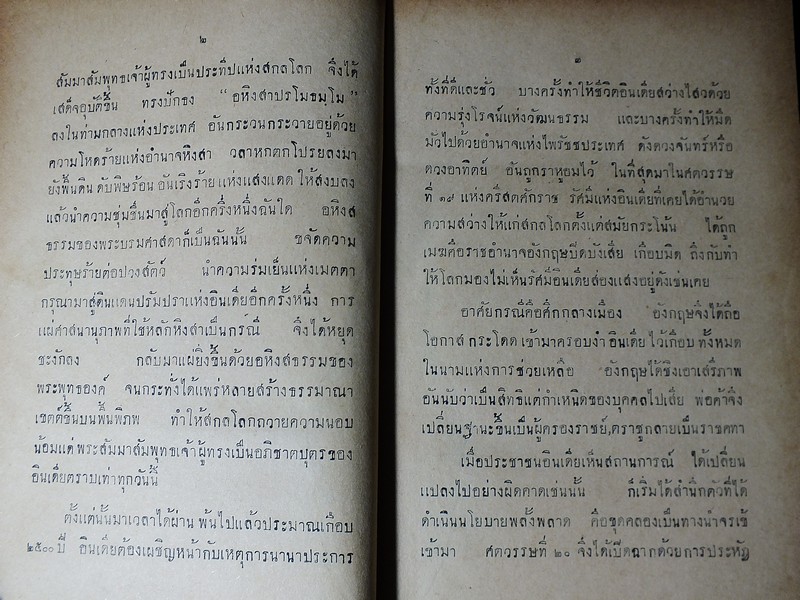 ๒
สัมมาสัมพุทธเจ้าผู้ทรงเป็นประทีปแห่งสกลโลก จึงได้
เสด็จอุบัติขึ้น ทรงปักธง “อหิงสาปรโมธมฺโม”
ลงในท่ามกลางแห่งประเทศ อันกระวนกระวายอยู่ด้วย
ความโหดร้ายแห่งอำนาจหิงสา วลาหกตกโปรยลงมา
ยังพื้นดิน ดับพิษร้อน อันเริงร้าย แห่งแสงแดด ให้สงบลง
แล้วนำความชุ่มชื่นมาสู่โลกอีกครั้งหนึ่งฉันใด อหิงส
ธรรมของพระบรมศาสดาก็เป็นฉันนั้น ขจัดความ
ประทุษร้ายต่อปวงสัตว์ นำความร่มเย็นแห่งเมตตา
กรุณามาสู่ดินแดนปรัมปราแห่งอินเดียอีกครั้งหนึ่ง การ
แผ่ศาสนานุภาพที่ใช้หลักหิงสาเป็นกรณี จึงได้หยุด
ชะงักลง กลับมาแผ่ยิ่งขึ้นด้วยอหิงสธรรมของ
พระพุทธองค์ จนกระทั่งได้แพร่หลายสร้างธรรมาณา
เขตต์ขึ้นบนพื้นพิภพ ทำให้สกลโลกถวายความนอบ
น้อมแด่ พระสัมมาสัมพุทธเจ้าผู้ทรงเป็นอภิชาตบุตรของ
อินเดียตราบเท่าทุกวันนี้
ตั้งแต่นั้นมาเวลาได้ผ่าน พ้นไปแล้วประมาณเกือบ
๒๕๐๐ ปี อินเดียต้องเผชิญหน้ากับเหตุการนานาประการ
๓
ทั้งที่ดีและชั่ว บางครั้งทำให้ชีวิตอินเดียสว่างไสวด้วย
ความรุ่งโรจน์แห่งวัฒนธรรม และบางครั้งทำให้มืด
มัวไปด้วยอำนาจแห่งไพรัชชประเทศ ดังดวงจันทร์หรือ
ดวงอาทิตย์ อันถูกราหูอมไว้ ในที่สุดมาในศตวรรษ
ที่ ๑๙ แห่งคริสตศักราช รัศมีแห่งอินเดียที่เคยได้อำนวย
ความสว่างให้แก่สกลโลกตั้งแต่สมัยกระโน้น ได้ถูก
เมฆคือราชอำนาจอังกฤษปิดบังเสีย เกือบมิด ถึงกับทำ
ให้โลกมองไม่เห็นรัศมีอินเดียส่องแสงอยู่ดังเช่นเคย
อาศัยกรณีคือศึกกลางเมือง อังกฤษจึงได้ถือ
โอกาส กระโดด เข้ามาครอบงำ อินเดีย ไว้เกือบ ทั้งหมด
ในนามแห่งการช่วยเหลือ อังกฤษได้ชิงเอาเสรีภาพ
อันนับว่าเป็นสิทธิแต่กำเหนิดของบุคคลไปเสีย พ่อค้าจึง
เปลี่ยนฐานะขึ้นเป็นผู้ครองราชย์,ตราชูกลายเป็นราชคทา
เมื่อประชาชนอินเดียเห็นสถานการณ์ ได้เปลี่ยน
แปลงไปอย่างผิดคาดเช่นนั้น ก็เริ่มได้สำนึกตัวที่ได้
ดำเนินนโยบายพลั้งพลาด คือขุดคลองเป็นทางนำจรเข้
เข้ามา ศตวรรษที่ ๒๐ จึงได้เปิดฉากด้วยการประหัฏ